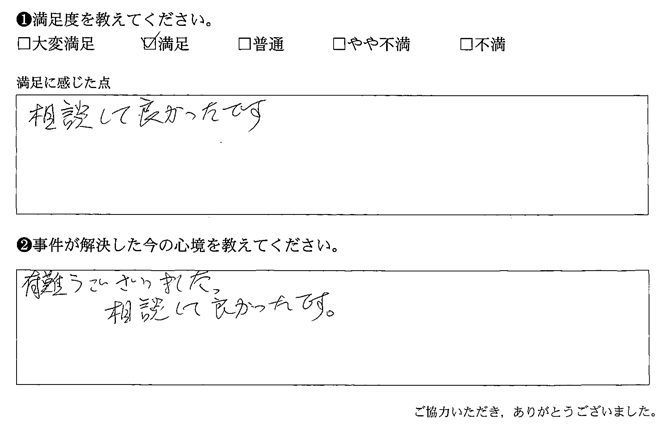 ❶満足度を教えてください。
□大変満足 ☑満足 □普通 □やや不満 □不満
満足に感じた点
相談して良かったです
❷事件が解決した今の心境を教えてください。
有難うございました。
相談して良かったです。
ご協力いただき，ありがとうございました。